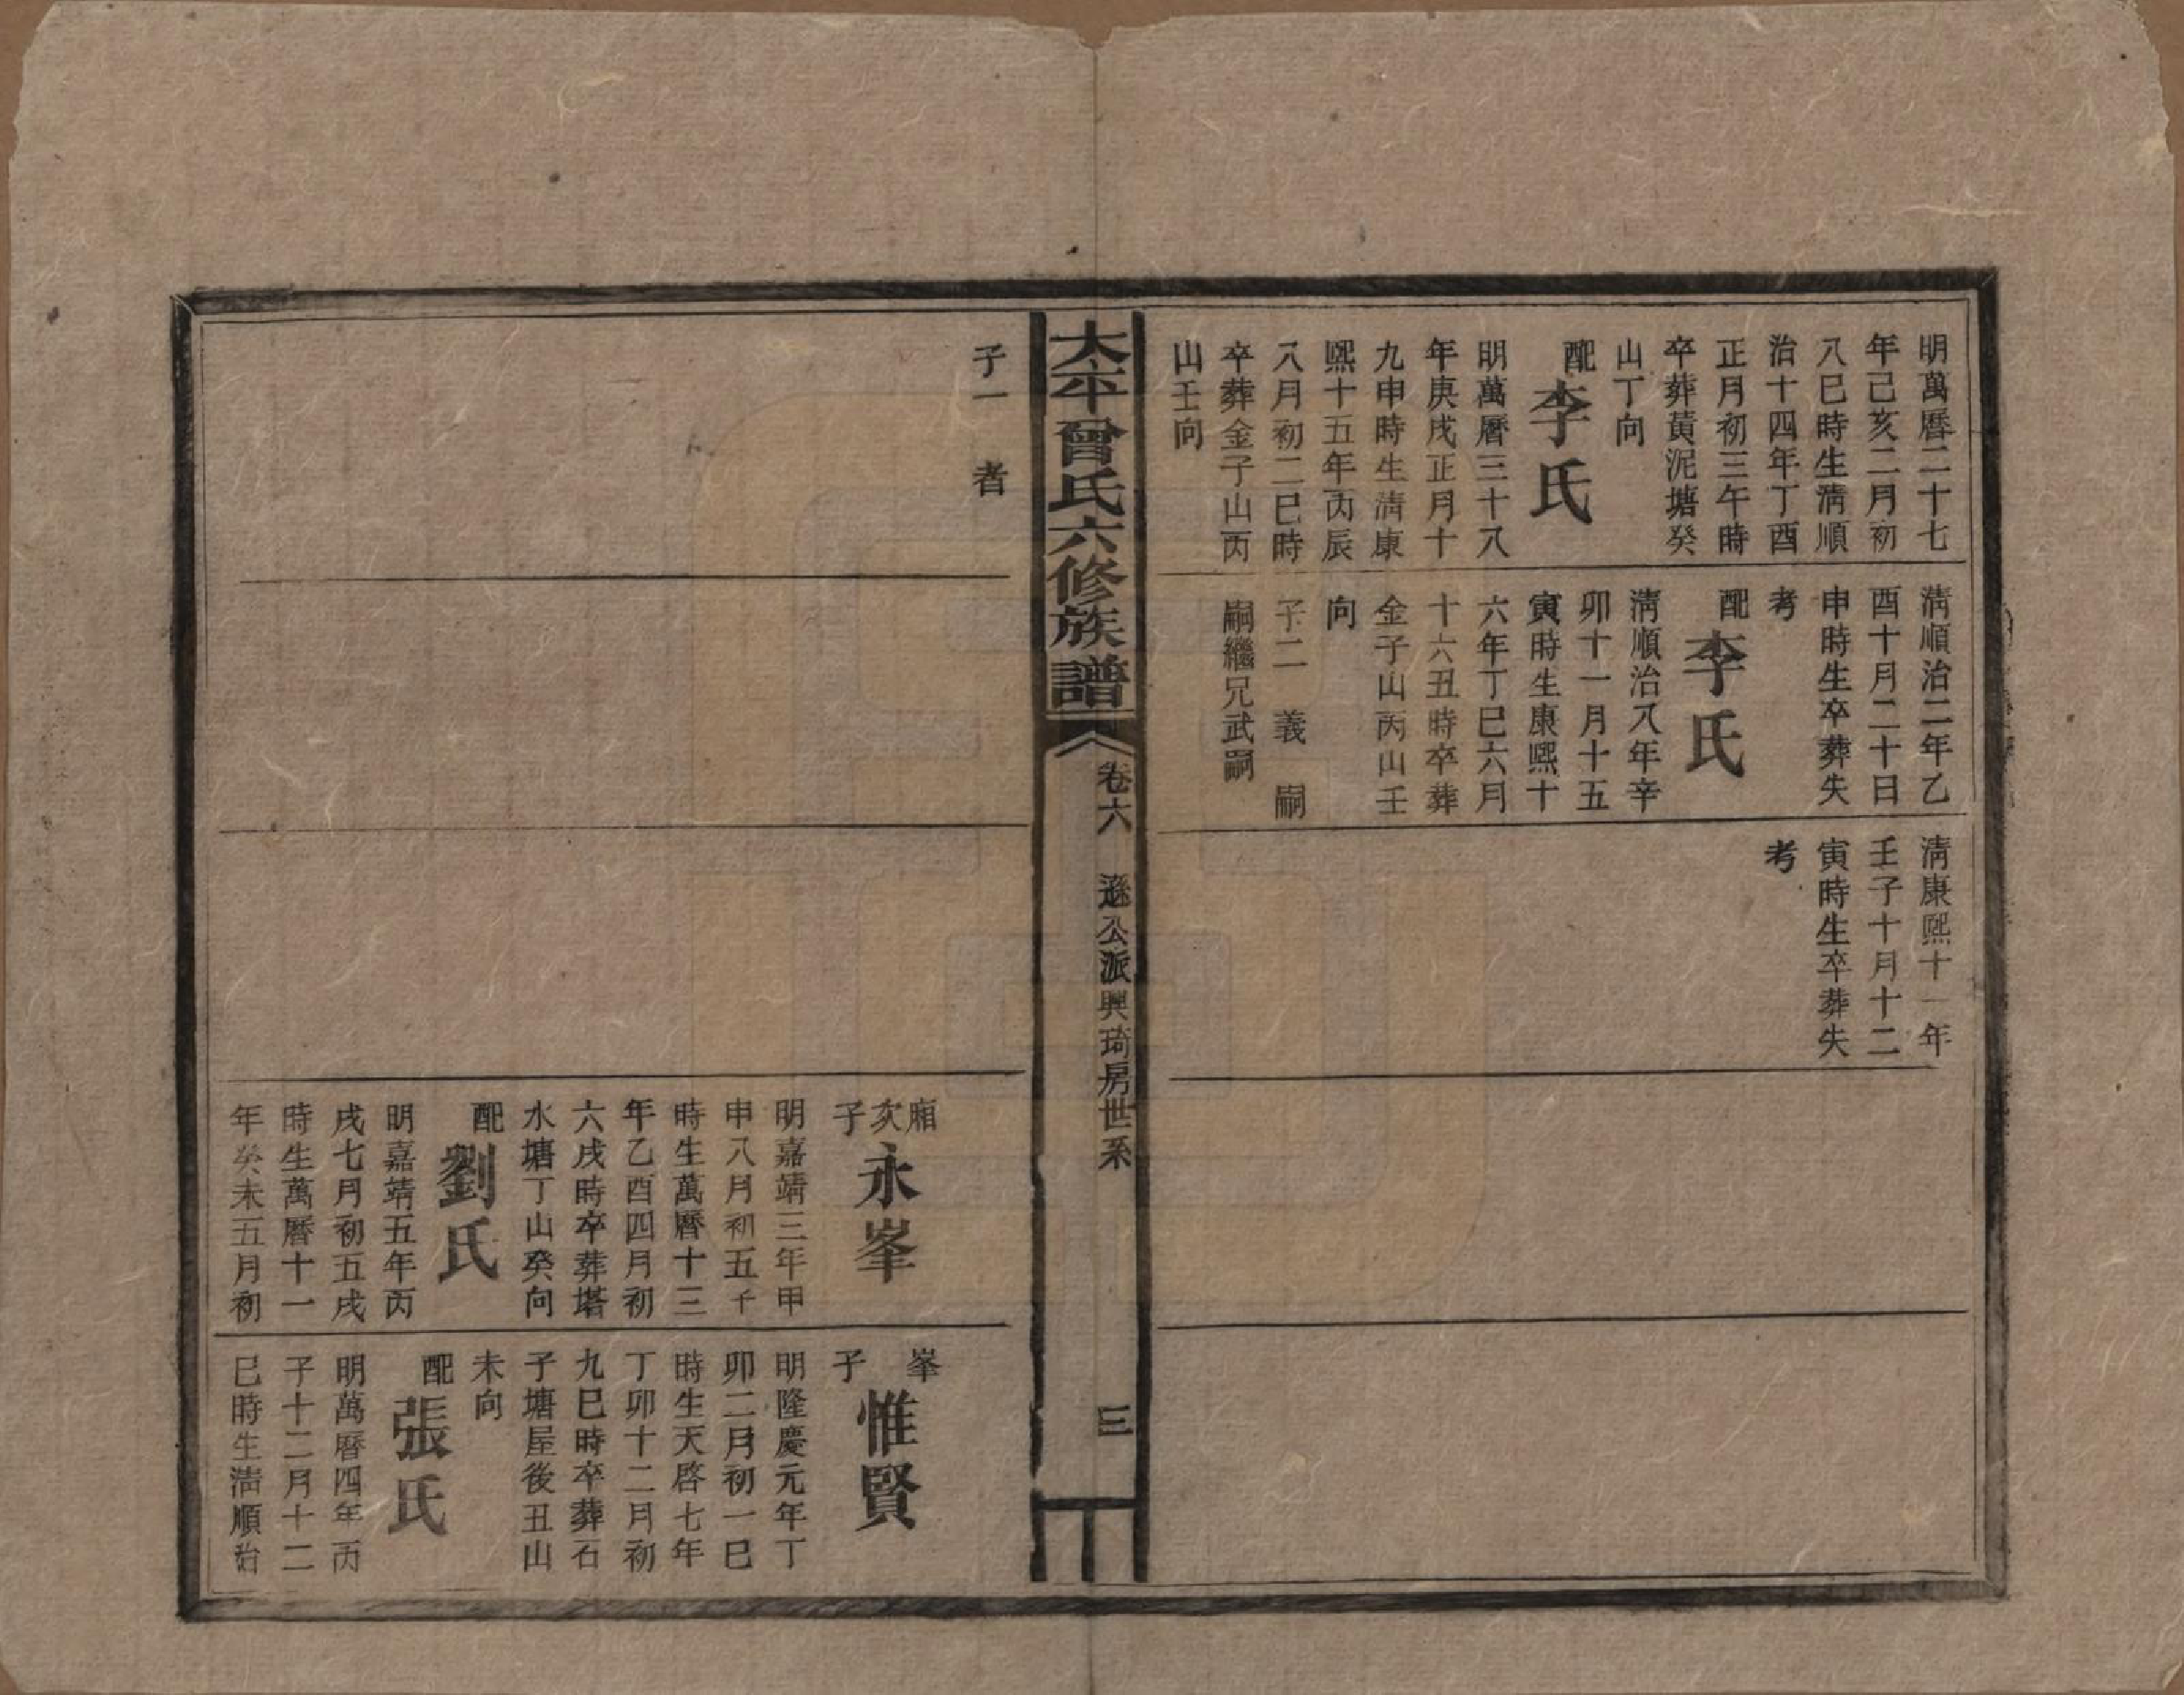 明萬曆二十七
年己亥二月初
八巳時生清順
治十四年丁酉
正月初三午時
卒葬黃泥塘癸
山丁向
配李氏
明萬曆三十八
年庚戌正月十
九申時生清康
熙十五年丙辰
八月初二巳時
卒葬金子山丙
山壬向
清順治二年乙
酉十月二十日
申時生卒葬失
考
配李氏
清順治八年辛
卯十一月十五
寅時生康熙十
六年丁巳六月
十六丑時卒葬
金子山丙山壬
向
子二 義 嗣
嗣繼兄武嗣
清康熙十一年
壬子十月十二
寅時生卒葬失
考
太平曾氏六修族譜
卷六 遜公派興琦房世系
三
子一 耇
廂次子永峯
明嘉靖三年甲
申八月初五子
時生萬曆十三
年乙酉四月初
六戌時卒葬塔
水塘丁山癸向
配劉氏
明嘉靖五年丙
戌七月初五戌
時生萬曆十一
年癸未五月初
峯子惟賢
明隆慶元年丁
卯二月初一巳
時生天啓七年
丁卯十二月初
九巳時卒葬石
子塘屋後丑山
未向
配張氏
明萬曆四年丙
子十二月十二
巳時生清順治